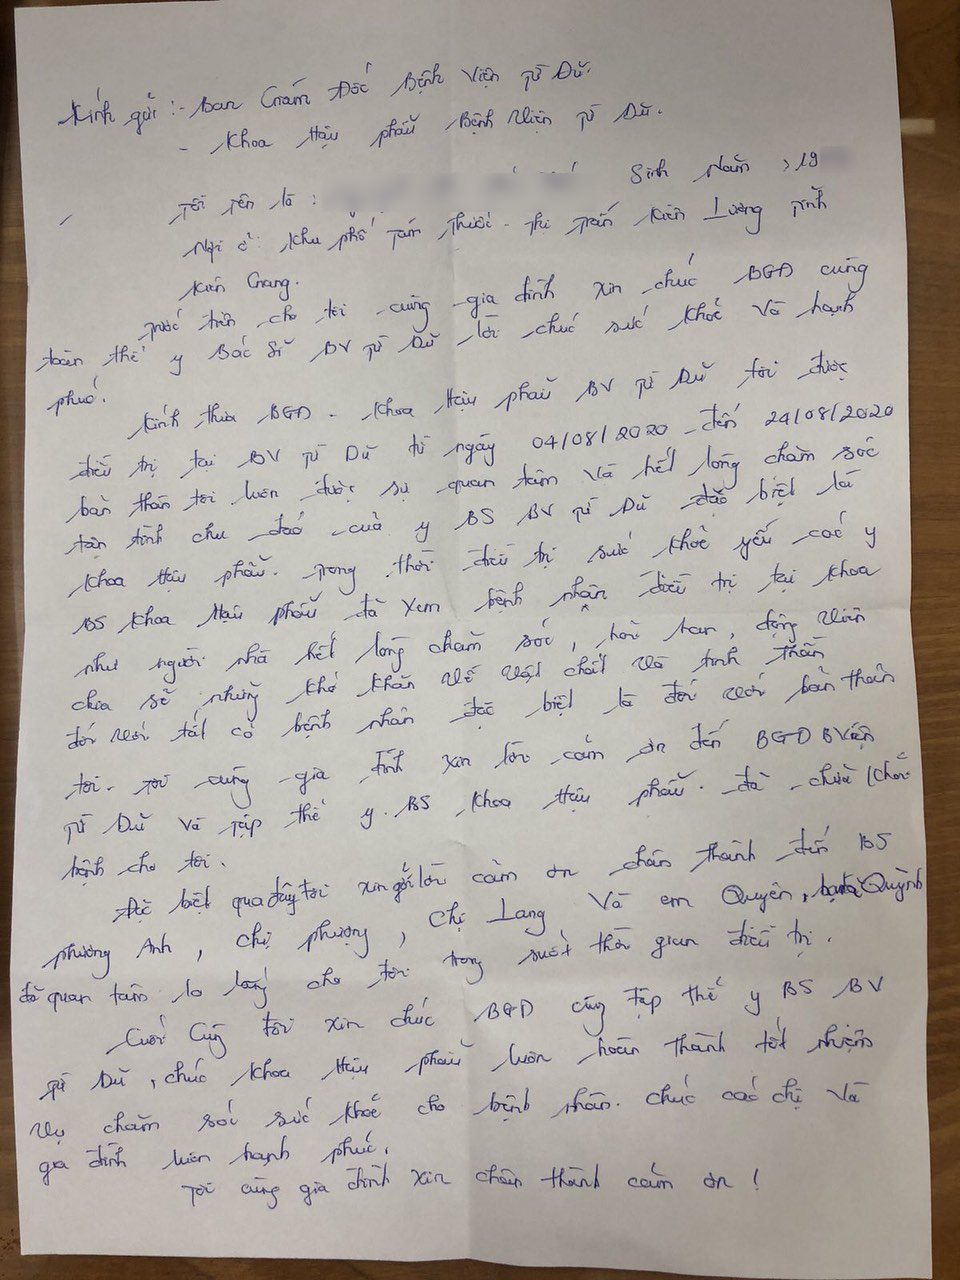 Kính gửi :- Ban Giám Đốc Bệnh Viện Từ Dũ.
- Khoa Hậu phẫu Bệnh Viện Từ Dũ.
Tôi tên là : Sinh Năm > 19
Ngụ ở khu phố Tám Thước - Thị Trấn Kiên Lương Tỉnh
Kiên Giang.
Trước tiên cho tôi cùng gia đình xin chúc BGĐ cùng
toàn thể y Bác Sĩ BV Từ Dũ lời chúc sức khỏe và hạnh
phúc.
Kính thưa BGĐ - Khoa Hậu phẫu BV Từ Dũ tôi được
điều trị tại BV Từ Dũ từ ngày 04/08/2020 đến 24/08/2020
bản thân tôi luôn được sự quan tâm và hết lòng chăm sóc
tận tình chu đáo của y BS BV Từ Dũ đặc biệt là
Khoa Hậu phẫu. Trong thời điều trị sức khỏe yếu các y
BS Khoa Hậu phẫu đã xem bệnh nhân điều trị tại Khoa
như người nhà hết lòng chăm sóc, han, động viên
chia sẽ những khó khăn về vật chất và tinh thần
đối với tất cả bệnh nhân đặc biệt là đối với bản thân
tôi. Tôi cùng gia đình xin lời cảm ơn đến BGĐ BViện
Từ Dũ và tập thể y. BS Khoa Hậu phẫu. đã chữa khỏi
bệnh cho tôi.
Đặc biệt qua đây tôi xin gởi lời cảm ơn chân thành đến BS
phương Anh, chị phượng, chị Lang và em Quyên, Quỳnh
đã quan tâm lo lắng cho tôi trong suốt thời gian điều trị.
Cuối Cùng tôi xin chúc BGĐ cùng tập thể y BS BV
Từ Dũ, chúc Khoa Hậu phẫu luôn hoàn thành tốt nhiệm
vụ chăm sóc sức khỏe cho bệnh nhân. chúc các chị và
gia đình luôn hạnh phúc.
Tôi cùng gia đình xin chân thành cảm ơn !